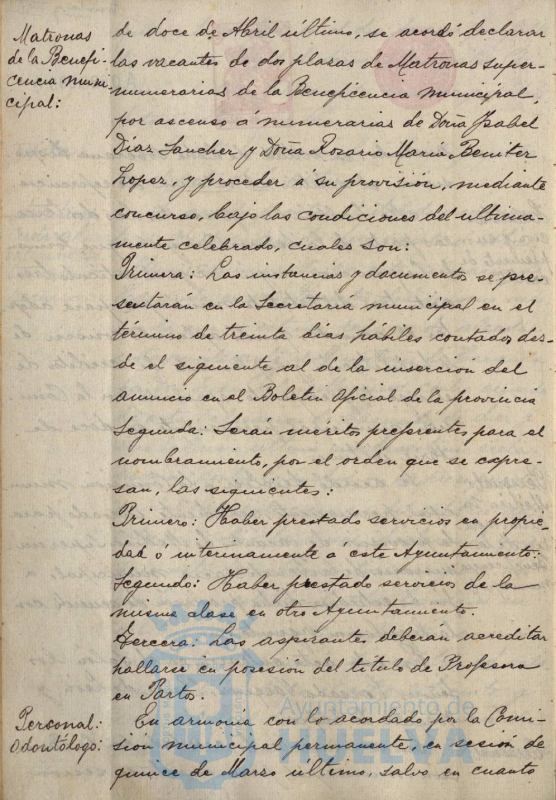 Matronas
de la Benefi-
cencia muni-
cipal:
de doce de Abril último, se acordó declarar
las vacantes de dos plazas de Matronas super-
numerarias de la Beneficencia municipal,
por ascenso á numerarias de Doña Isabel
Díaz Sanchez y Doña Rosario María Benitez
Lopez, y proceder á su provisión, mediante
concurso, bajo las condiciones del ultima-
mente celebrado, cuales son:
Primera: Las instancias y documentos se pre-
sentarán en la Secretaría municipal en el
término de treinta dias hábiles contados des-
de el siguiente al de la inserción del
anuncio en el Boletin Oficial de la provincia
Segunda: Serán méritos preferentes para el
nombramiento, por el orden que se expre-
san, las siguientes:
Primero: Haber prestado servicios en propie-
dad ó interinamente á este Ayuntamiento:
Segundo: Haber prestado servicios de la
misma clase en otro Ayuntamiento.
Tercera: Las aspirantes deberán acreditar
hallarse en posesión del título de Profesora
en Partos.
Personal:
Odontólogo:
En armonía con lo acordado por la Comi-
sión municipal permanente, en sesión de
quince de Marzo último, salvo en cuanto
Ayuntamiento de
HUELVA